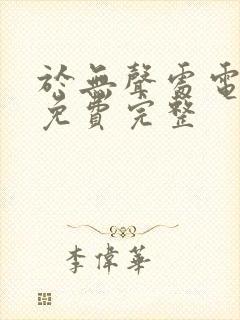 於無聲雷電
免費完整
李偉華